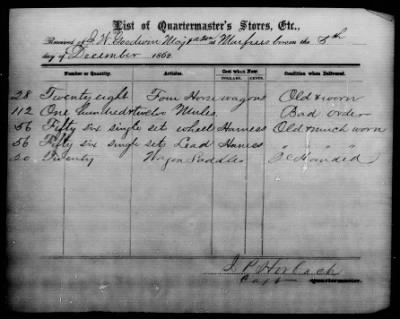 List of Quartermaster's Stores, Etc.,
Received of J. W. Goodwin Maj & aqm Murfreesboro on the 8th
day of December 1862
Number or Quantity. Articles. Cost when New. Condition when Delivered.
DOLLARS. CENTS.
28 Twenty eight Four Horse wagons Old & worn
112 One hundred & twelve Mules Bad order
56 Fifty six single set wheel Harness Old & much worn
56 Fifty six single set Lead Harness " " "
20 Twenty Wagon Saddles
J P Horbach
Capt Quartermaster.